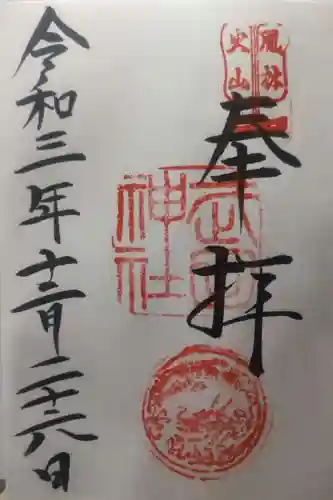 風林
火山
奉拝
武田
神社
令和三年十二月二十六日